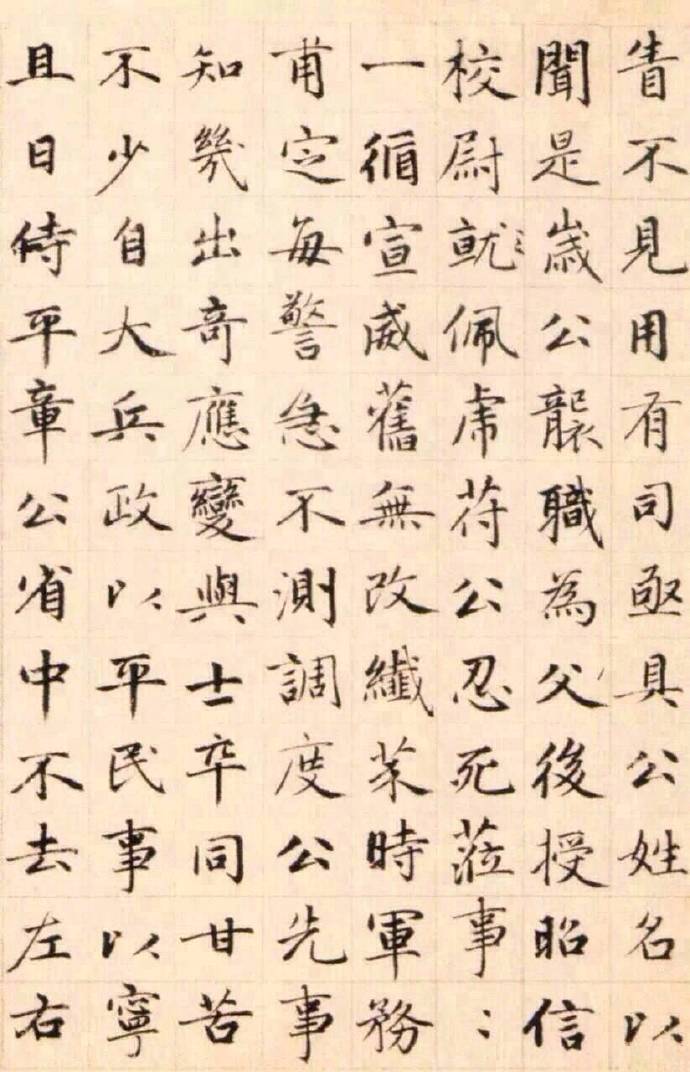 眚不見用有司亟具公姓名以
聞是歲公襲職為父後授昭信
校尉就佩虎苻公忍死蒞事〻
一循宣威舊無改纖芥時軍務
甫定每警急不測調度公先事
知幾出奇應變與士卒同甘苦
不少自大兵政以平民事以寧
且日侍平章公省中不去左右